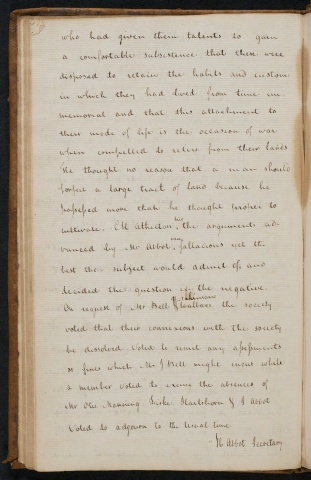 who had given them talents to gain
a comfortable subsistence that they were
disposed to retain the habits and custom
in which they had lived from time im-
memorial and that this attachment to
their mode of life is the occasion of war
when compelled to retire from their lands
He thought no reason that a man should
forfeit a large tract of land because he
possessed more than he thought proper to
cultivate. Ch Atherton, the arguments ad-
vanced by Mr Abbot, fallacious yet the
best the subject would admit of, and
decided the question in the negative.
On request of Mr Bell & Wallace the society
voted that their connexions with the society
be dissolved. Voted to remit any assessments
or fines which Mr J Bell might incur while
a member voted to excuse the absences of
Mr Manning & J Abbot
Voted to adjourn to the usual time
Abbot Secretary